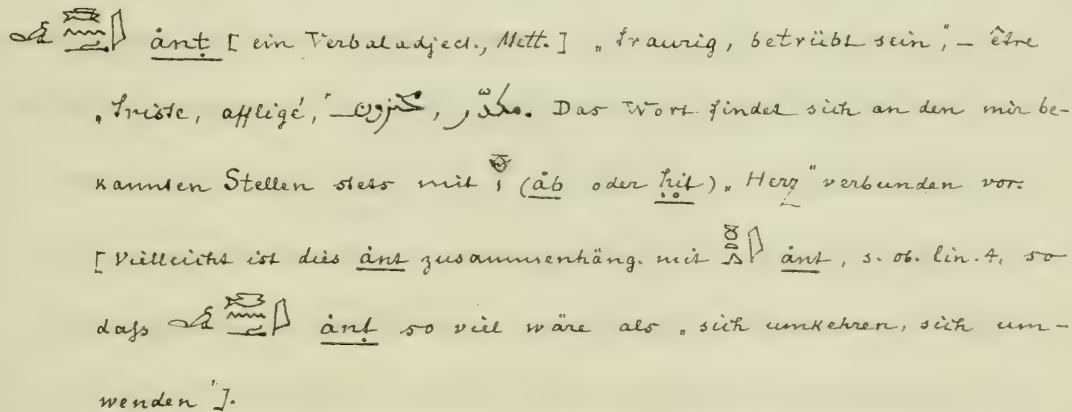 ȧnṭ [ein Verbaladject., Mett.] „traurig, betrübt sein", – être
„triste, affligé," محزون, مكدّر. Das Wort findet sich an den mir be-
kannten Stellen stets mit (ȧb oder ḥiṭ) „Herz" verbunden vor.
[Vielleicht ist dies ȧnṭ zusammenhäng. mit ȧnt, s. ob. lin. 4, so
daſs ȧnṭ so viel wäre als „sich umkehren, sich um-
wenden"].